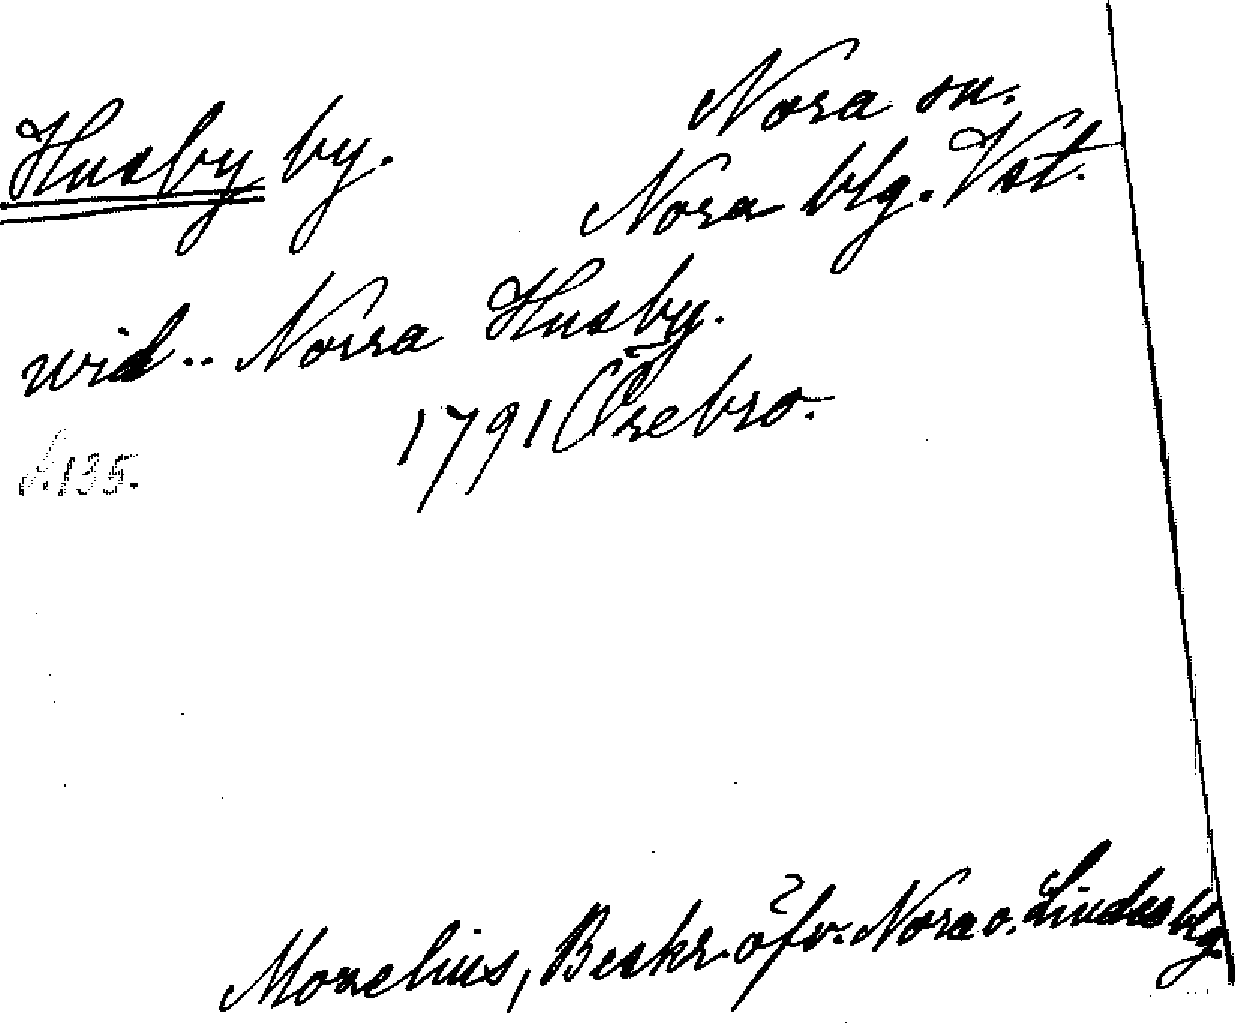 Nora sn.
Husby by.
Nora blg. Vst.
wid .. Norra Husby.
1791 Örebro.
s. 135.
Morelius, Beskr. öfv. Nora o. Lindes blg.